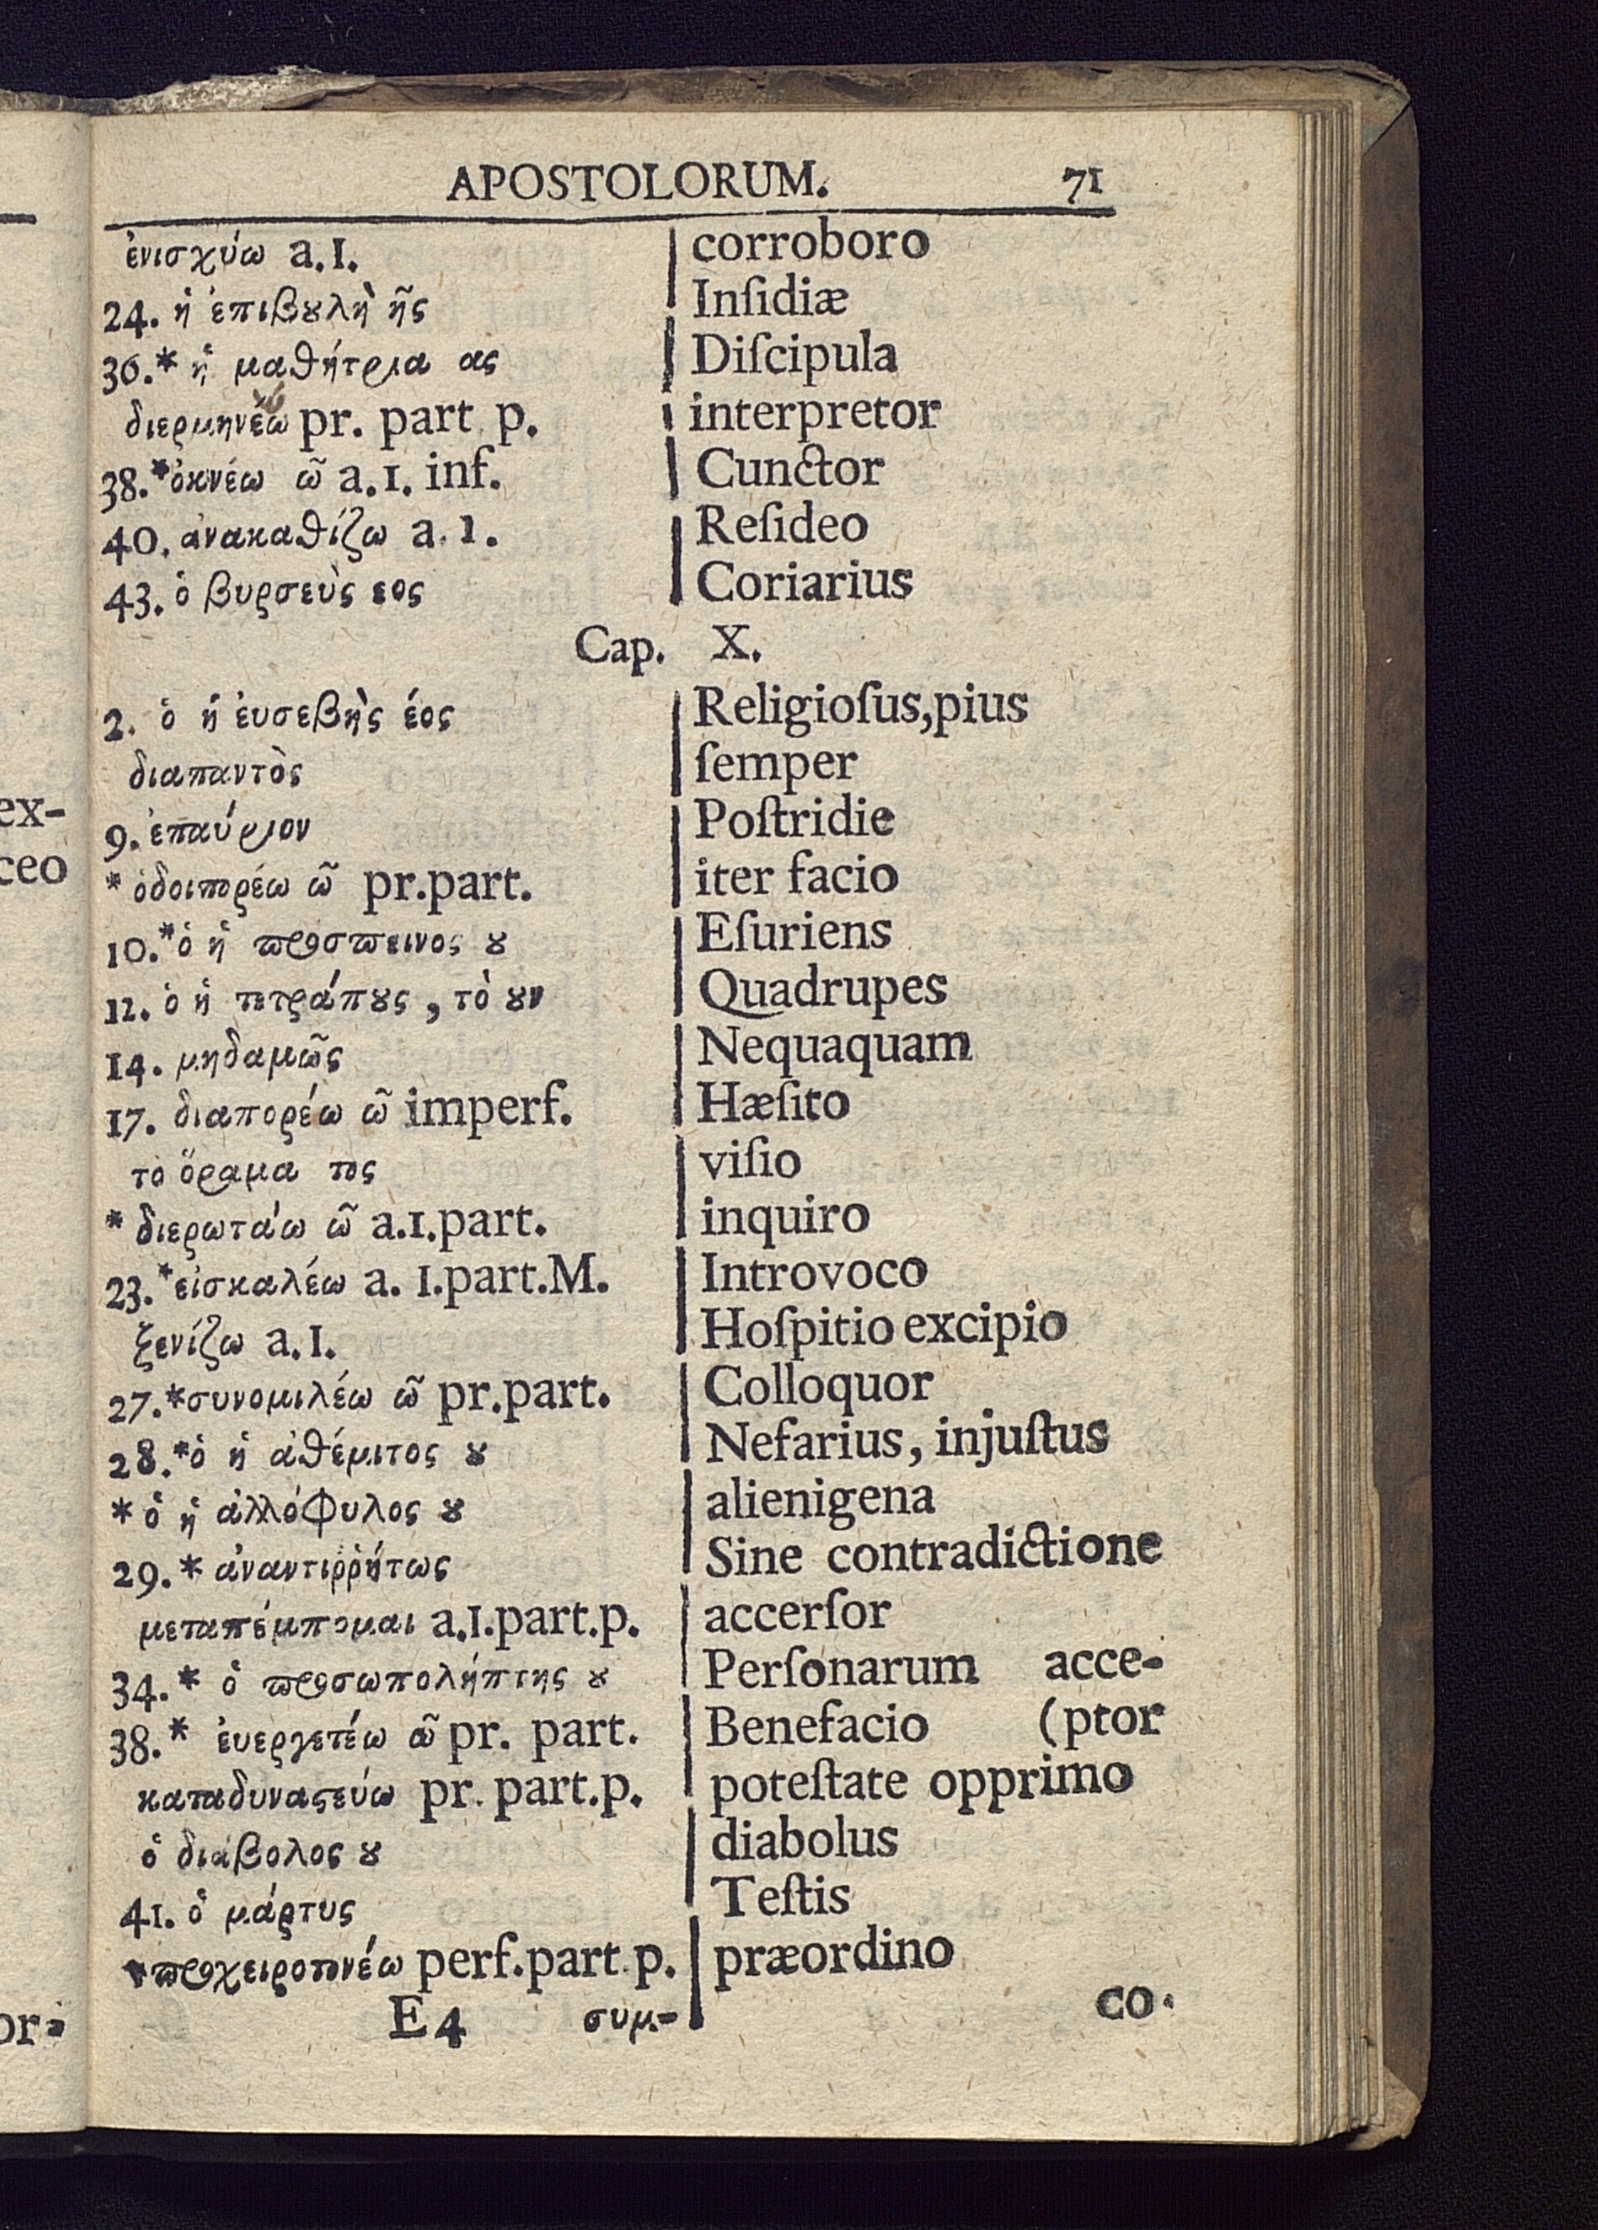 APOSTOLORUM. 71
ἐνισχύω a.1. corroboro
24. ἡ ἐπιβȣλὴ ῆς Inſidiæ
36.* ἡ μαθήτρια ας Diſcipula
διερμηνέω pr. part p. interpretor
38.*ὀκνέω ῶ a.1. inf. Cunctor
40. ἀνακαθίζω a. 1. Reſideo
43. ὁ βυρσεὺς εος Coriarius
Cap. X.
2. ὁ ἡ ἐυσεβὴς έος Religioſus,pius
διαπαντὸς ſemper
9. ἐπαύριον Poſtridie
* ὁδοιπορέω ῶ pr.part. iter facio
10.*ὁ ἡ προσπεινος ȣ Eſuriens
12. ὁ ἡ τετράπȣς, τὸ ȣν Quadrupes
14. μηδαμῶς Nequaquam
17. διαπορέω ῶ imperf. Hæſito
τὸ ὅραμα τος viſio
* διερωτάω ῶ a.1.part. inquiro
23.*εἰσκαλέω a. 1.part.M. Introvoco
ξενίζω a.1. Hoſpitio excipio
27.*συνομιλέω ῶ pr.part. Colloquor
28.*ὁ ἡ ἀθέμιτος ȣ Nefarius, injuſtus
* ὁ ἡ ἀλλόφυλος ȣ alienigena
29.* ἀναντιῤῥήτως Sine contradictione
μεταπέμπομαι a.1.part.p. accerſor
34.* ὁ προσωπολήπτης ȣ Perſonarum acce-
38.* ἐυεργετέω ῶ pr. part. Benefacio (ptor
καταδυναϛεύω pr. part.p. poteſtate opprimo
ὁ διάβολος ȣ diabolus
41. ὁ μάρτυς Teſtis
*προχειροτονέω perf.part.p. præordino
E4 συμ- co-
ex-
ceo
or-